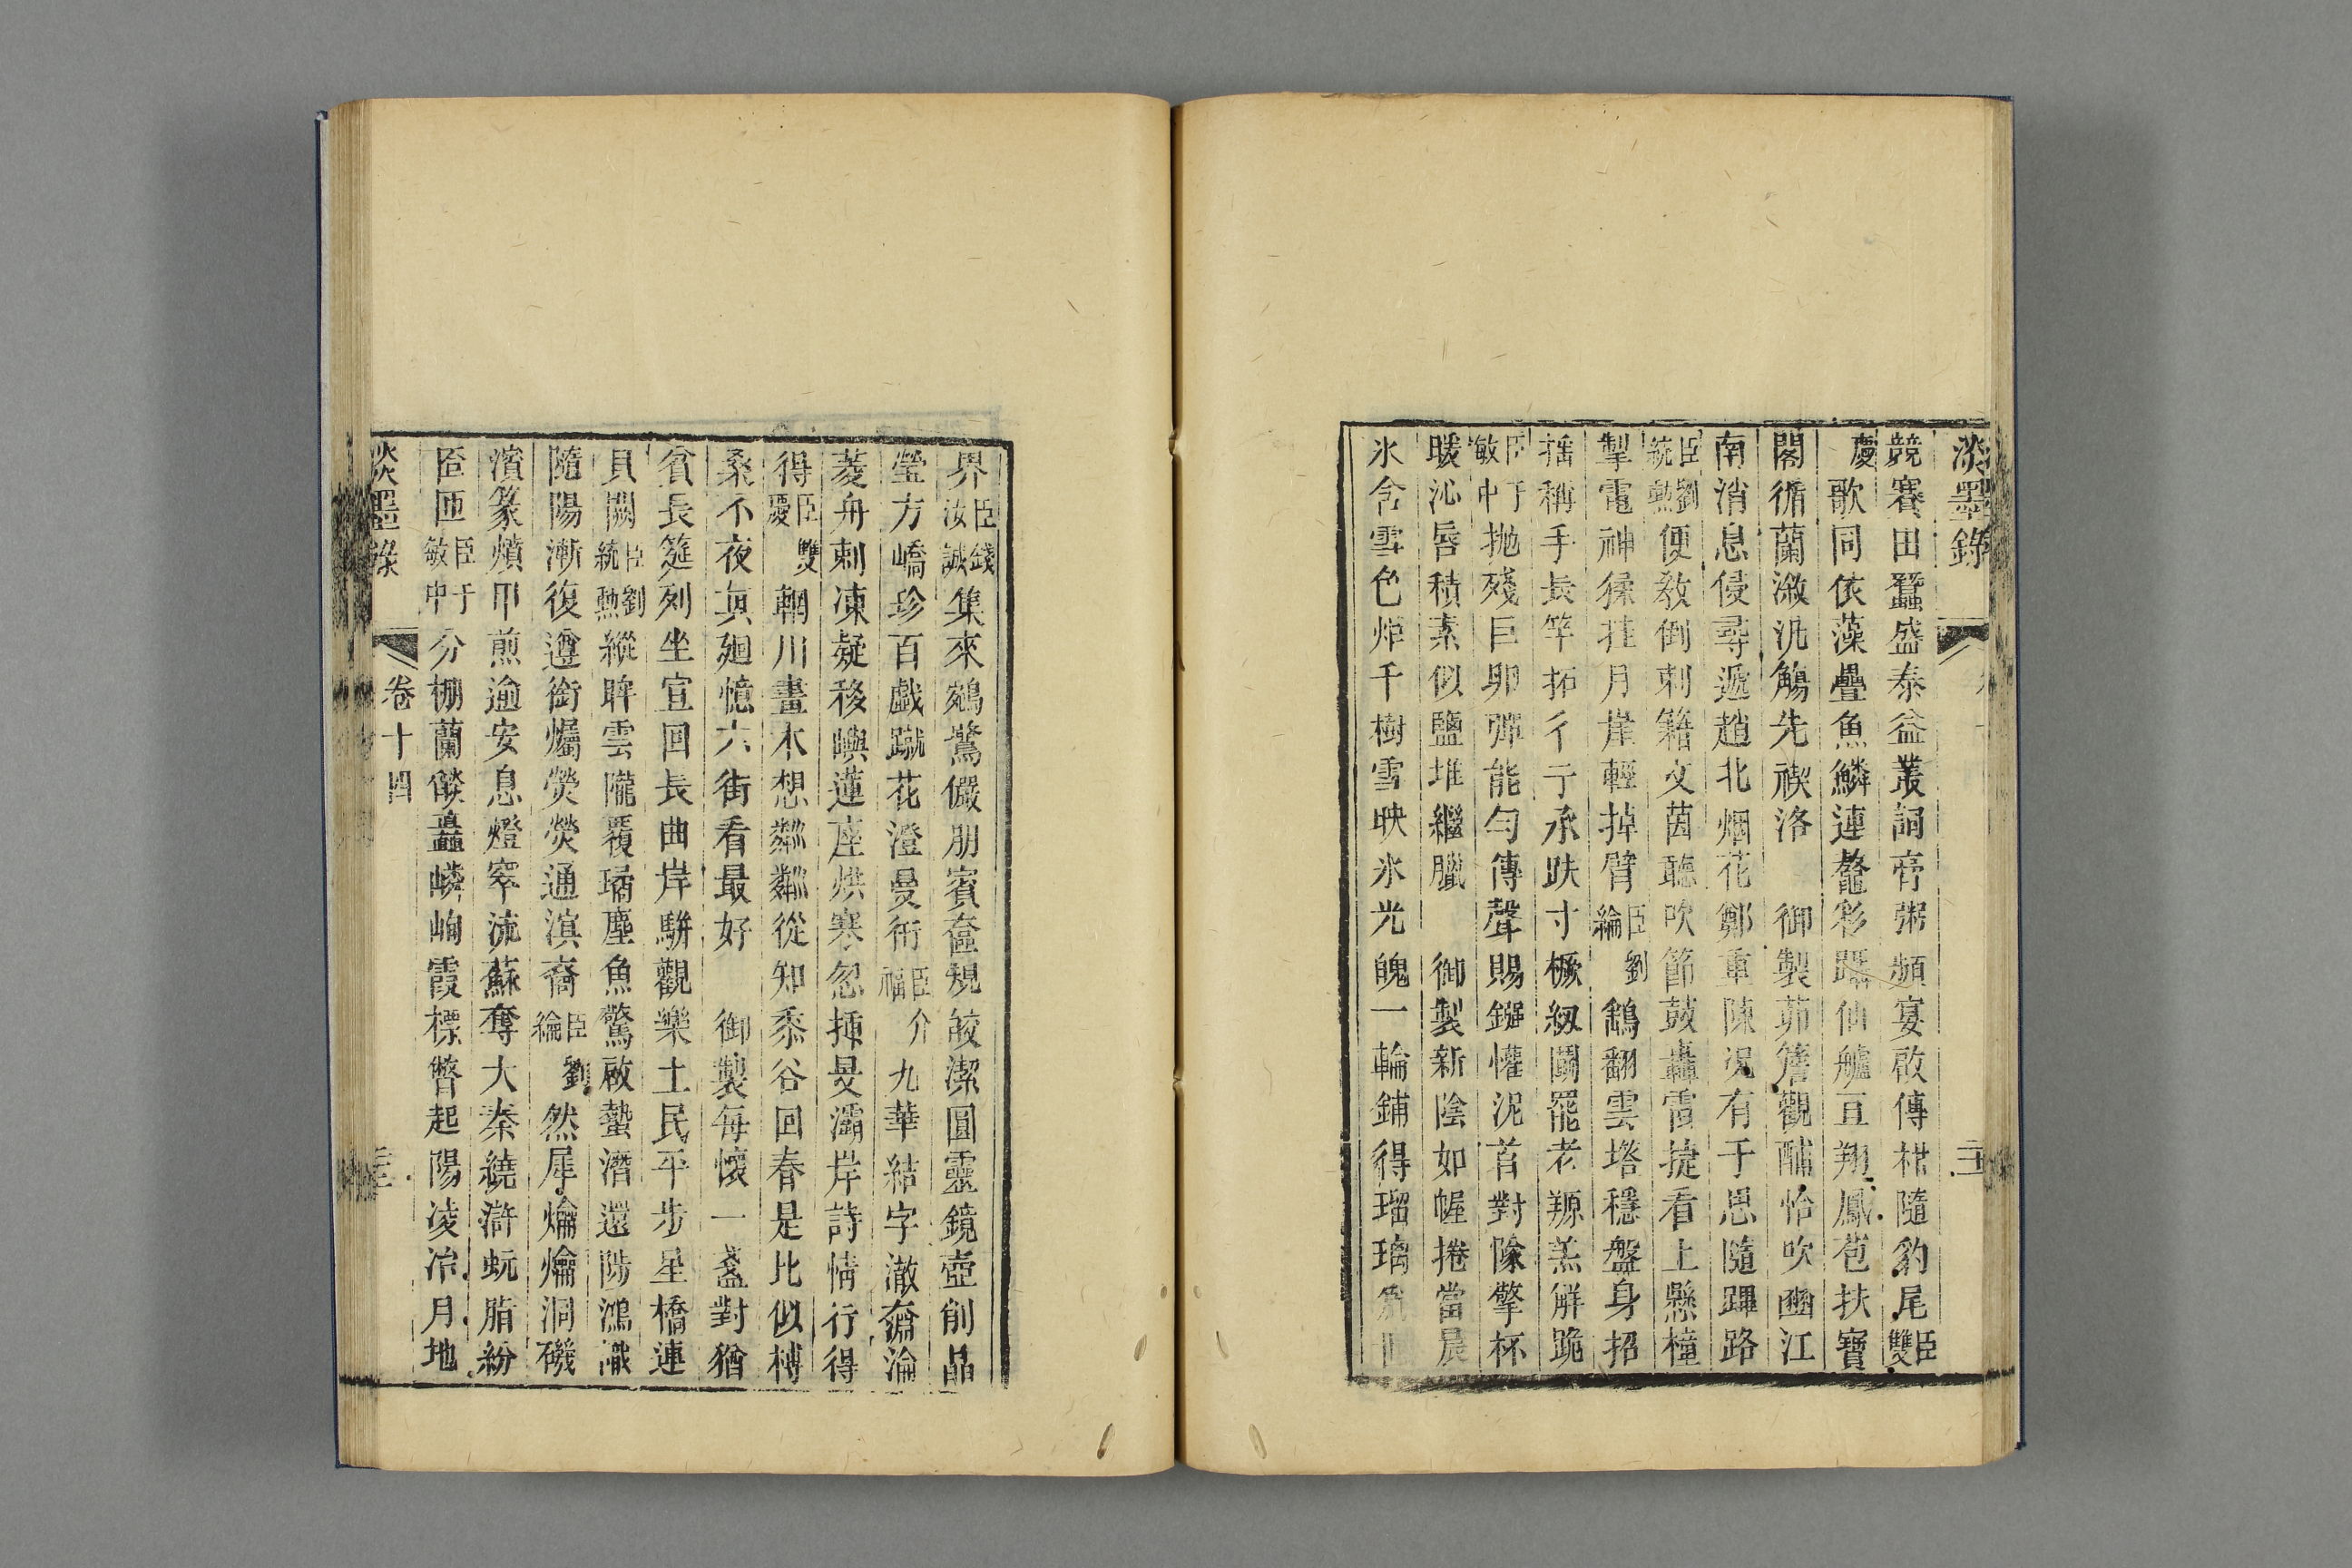 淡墨錄
競賽田蠶盛泰益叢詞膏粥頻宴啟傳柑隨豹尾臣雙
慶歌同依藻疊魚鱗連鼇彩躡仙艫亘翔鳳苞扶寶
閣循蘭漵汎觴先禊洛 御製茆簷觀酺恰吹豳江
南消息侵尋遞趙北烟花鄭重陳况有于思隨蹕路
臣劉統勲便敎倒刺籍文茵聽吹節鼓轟雷捷看上懸橦
掣電神猱挂月崖輕掉臂臣劉綸鷂翻雲塔穩盤身招
揺稱手長竿拓彳亍承趺寸橛紉鬬罷老羱羔解跪
臣于敏中抛殘巨卵彈能勻傳聲賜鐂懽泥首對隊擎杯
暖沁唇積素似鹽堆繼臘 御製新陰如幄捲當晨
氷含雪色炬千樹雪映氷光魄一輪鋪得瑠璃
界臣錢汝誠集來鵷鷺儼朋賓奩規皎潔圓靈鏡壺削晶
瑩方嶠珍百戲蹴花澄曼衍臣介福九華結字澈奫淪
菱舟刺凍凝移嶼蓮座烘寒忽揷旻灞岸詩情行得
得臣雙慶輞川畫木想鄰鄰從知黍谷回春是比似榑
桑不夜眞廻憶六街看最好 御製每懷一盞對猶
貧長筵列坐宣回長曲岸駢觀樂土民平步星橋連
貝闕臣劉統勲縱眸雲隴覆璚塵魚驚啟蟄潛還陟鴻識
隨陽漸復遵銜爥熒熒通滇裔臣劉綸然犀爚爚洞磯
濱篆燌甲煎逾安息燈窣流蘇奪大秦繞滸蚖脂紛
匼匝臣于敏中分棚蘭燄矗嶙峋霞標瞥起陽凌冶月地
淡墨錄 卷十四